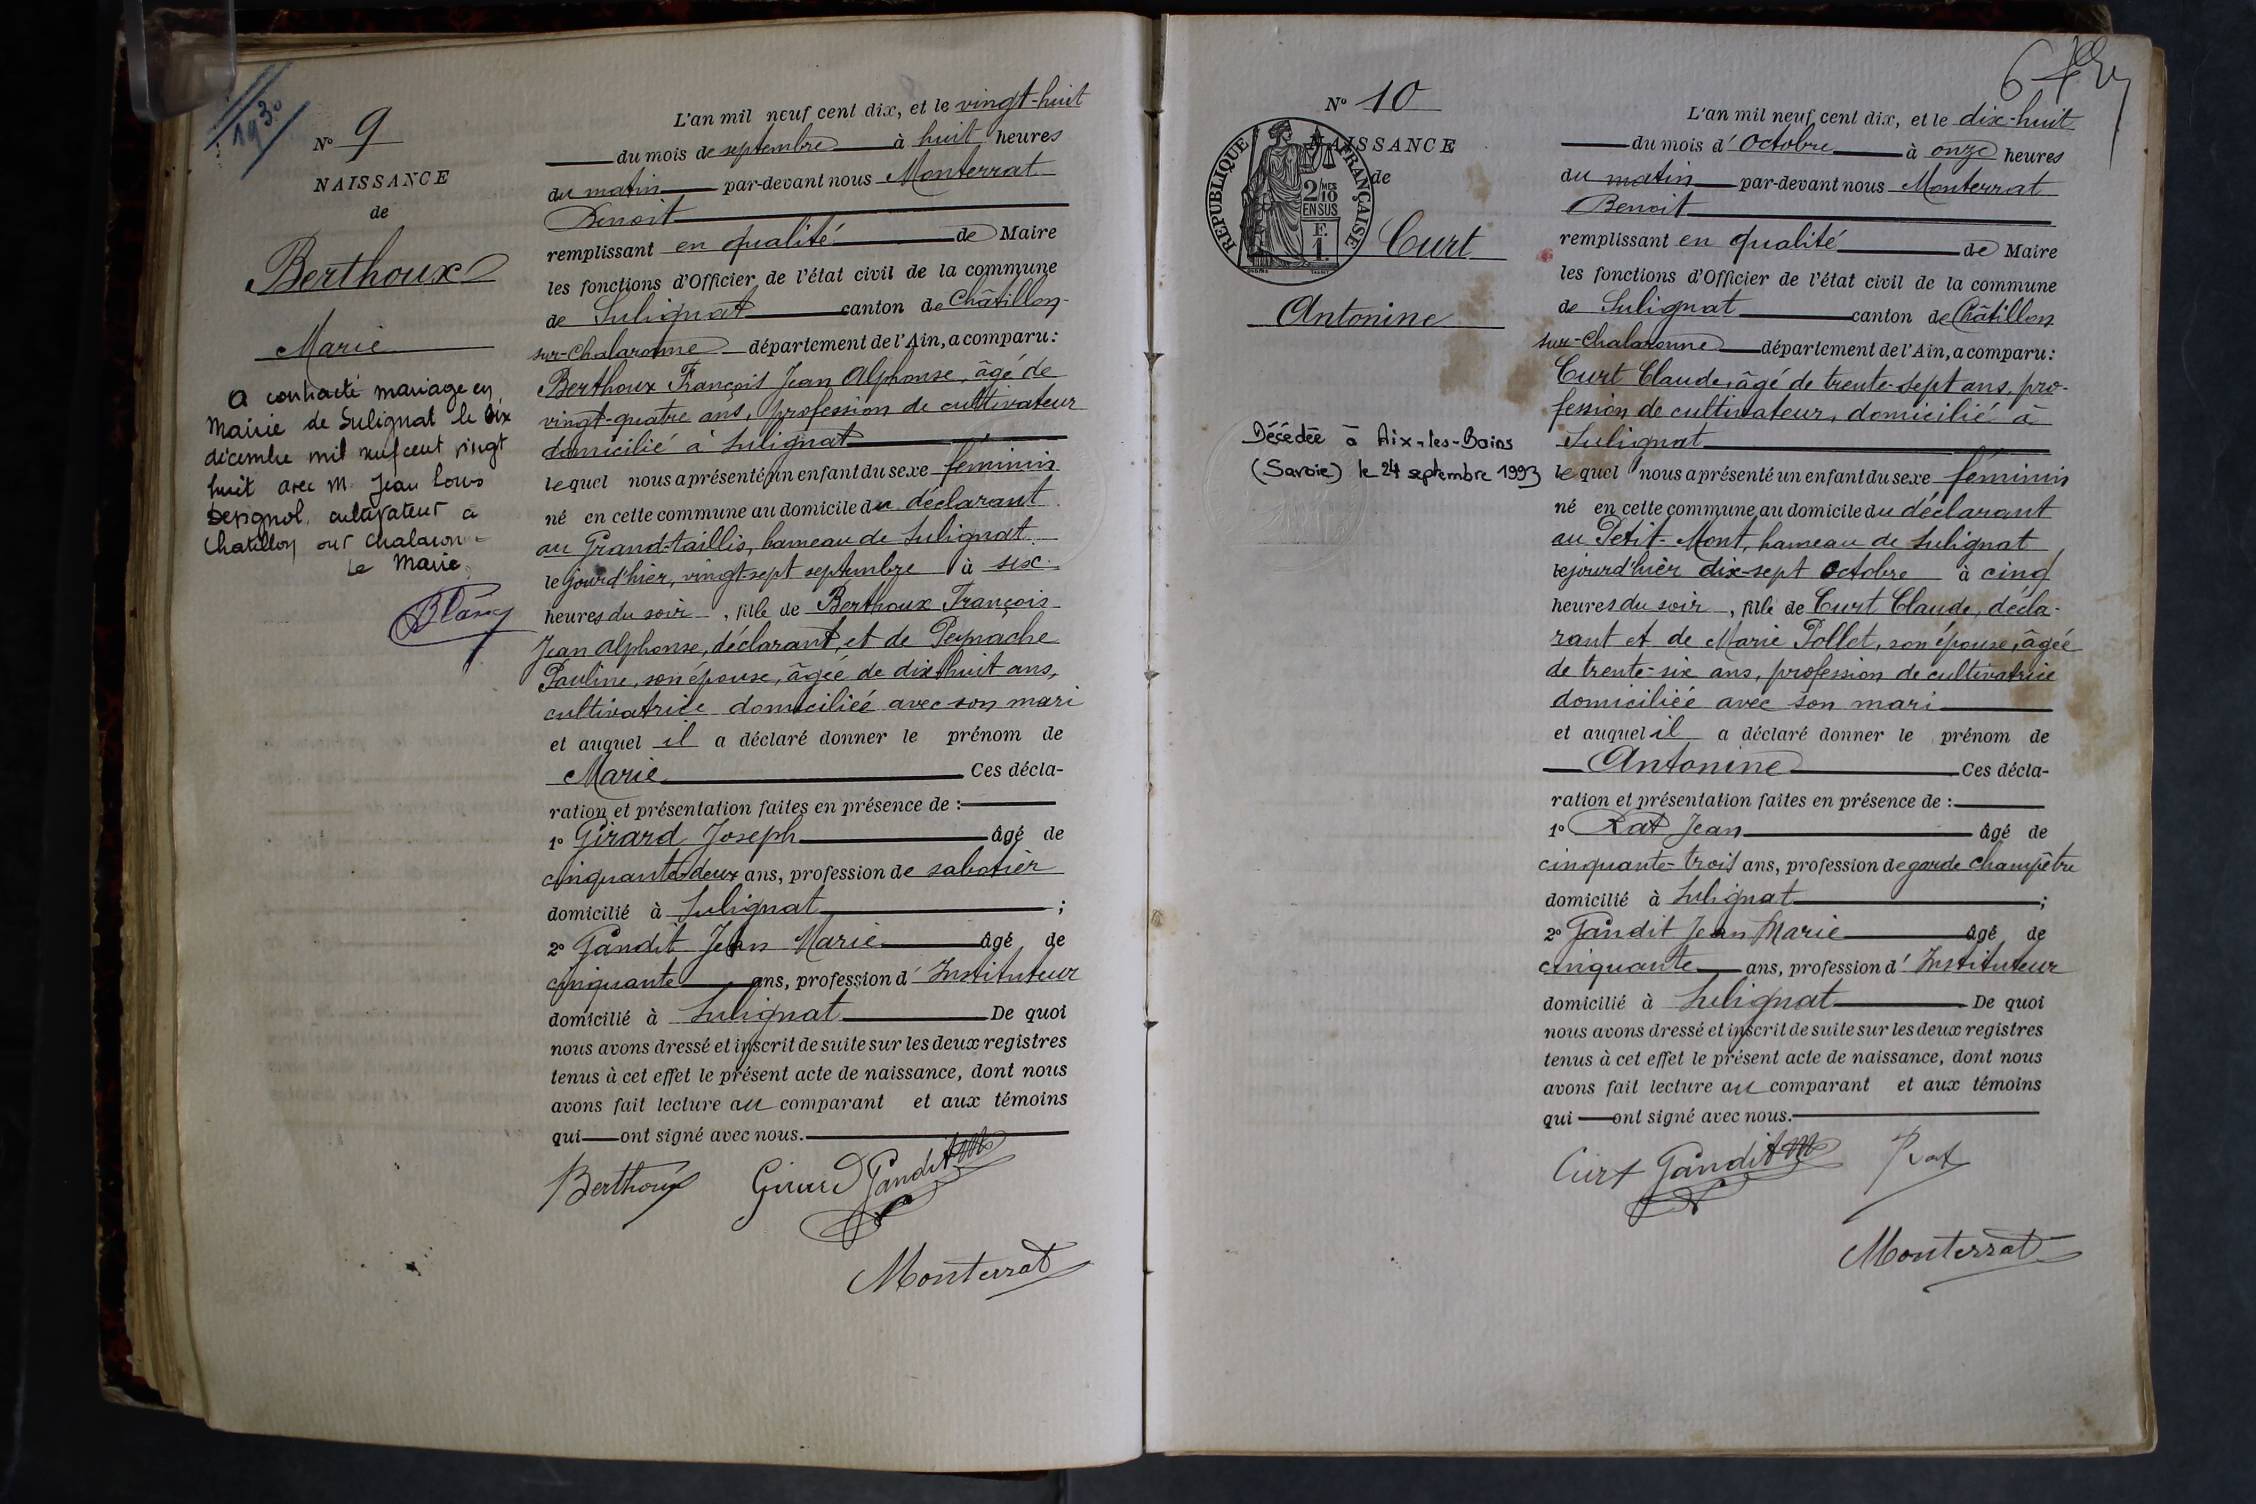 193
N° 9
NAISSANCE
de
Berthoux
Marie
A contracté mariage en
Mairie de Sulignat le six
décembre mil neuf cent vingt
huit avec M. Jean Louis
cultivateur à
Chatillon sur Chalaron-
Le Maire
L'an mil neuf cent dix, et le vingt-huit
du mois de septembre à huit heures
du matin par-devant nous Monterrat
Benoit
remplissant en qualité de Maire
les fonctions d'Officier de l'état civil de la commune
de Sulignat canton de Châtillon-
sur-Chalaronne département de l'Ain, a comparu :
Berthoux François Jean Alphonse, âgé de
vingt-quatre ans, profession de cultivateur
domicilié à Sulignat
lequel nous a présenté un enfant du sexe féminin
né en cette commune au domicile du déclarant
au Grand-taillis, hameau de Sulignat
le jourd'hier, vingt-sept septembre à six
heures du soir, fille de Berthoux François
Jean Alphonse, déclarant, et de
Pauline, son épouse, âgée de dix-huit ans,
cultivatrice domiciliée avec son mari
et auquel il a déclaré donner le prénom de
Marie Ces décla-
ration et présentation faites en présence de :
1° Girard Joseph âgé de
cinquante-deux ans, profession de sabotier
domicilié à Sulignat ;
2° Gandit Jean Marie âgé de
cinquante ans, profession d'Instituteur
domicilié à Sulignat De quoi
nous avons dressé et inscrit de suite sur les deux registres
tenus à cet effet le présent acte de naissance, dont nous
avons fait lecture au comparant et aux témoins
qui ont signé avec nous.
Berthoux Girard Gandit JM
Monterrat
N° 10
NAISSANCE
de
RÉPUBLIQUE FRANÇAISE
2/10 MES
EN SUS
F.
1.
Curt
Antonine
Décédée à Aix-les-Bains
(Savoie) le 24 septembre 1993
L'an mil neuf cent dix, et le dix-huit
du mois d'Octobre à onze heures
du matin par-devant nous Monterrat
Benoit
remplissant en qualité de Maire
les fonctions d'Officier de l'état civil de la commune
de Sulignat canton de Châtillon
sur-Chalaronne département de l'Ain, a comparu :
Curt Claude, âgé de trente-sept ans, pro-
fession de cultivateur, domicilié à
Sulignat
lequel nous a présenté un enfant du sexe féminin
né en cette commune, au domicile du déclarant
au Petit-Mont, hameau de Sulignat
le jourd'hier dix-sept Octobre à cinq
heures du soir, fille de Curt Claude, décla-
rant et de Marie Pollet, son épouse, âgée
de trente-six ans, profession de cultivatrice
domiciliée avec son mari
et auquel il a déclaré donner le prénom de
Antonine Ces décla-
ration et présentation faites en présence de :
1° Rat Jean âgé de
cinquante-trois ans, profession de garde champêtre
domicilié à Sulignat ;
2° Gandit Jean Marie âgé de
cinquante ans, profession d'Instituteur
domicilié à Sulignat De quoi
nous avons dressé et inscrit de suite sur les deux registres
tenus à cet effet le présent acte de naissance, dont nous
avons fait lecture au comparant et aux témoins
qui ont signé avec nous.
Curt Gandit JM Rat
Monterrat